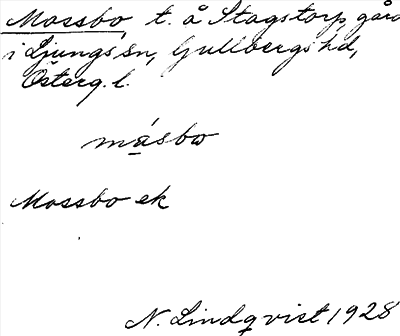 Mossbo t. å Stagstorp gård
i Ljungs sn, Gullbergs hd,
Österg. l.
måsbω
Mossbo ek
N. Lindqvist 1928